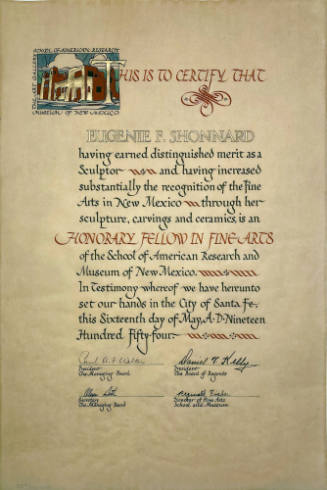 SCHOOL OF AMERICAN RESEARCH
THE ART GALLERY
MUSEUM OF NEW MEXICO
THIS IS TO CERTIFY THAT
EUGENIE F. SHONNARD
having earned distinguished merit as a
Sculptor and having increased
substantially the recognition of the Fine
Arts in New Mexico through her
sculpture, carvings and ceramics, is an
HONORARY FELLOW IN FINE ARTS
of the School of American Research and
Museum of New Mexico.
In Testimony whereof we have hereunto
set our hands in the City of Santa Fe,
this Sixteenth day of May, A·D·Nineteen
Hundred Fifty-four
Daniel T. Kelly
President
The Managing Board
President
The Board of Regents
Secretary
The Managing Board
Director of Fine Arts
School and Museum